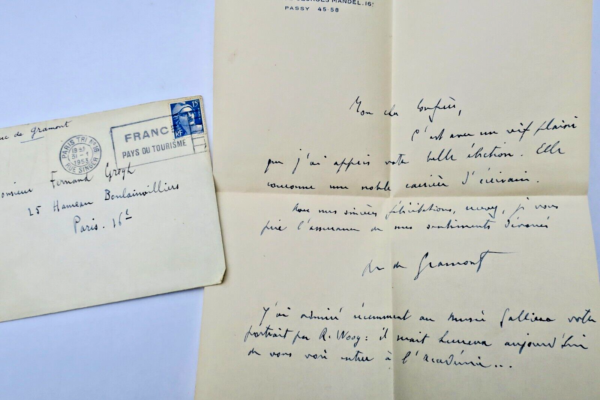 GEORGES MANDEL, 16ᵉ
PASSY 45-58
Mon cher Confrère,
C'est avec un vif plaisir
que j'ai appris votre belle élection. Elle
couronne une noble carrière d'écrivain.
Avec mes sincères félicitations, je vous
prie l'assurance de mes sentiments dévoués
de Gramont
J'ai admiré récemment au musée Galliera votre
portrait par R. Woog: il serait heureux aujourd'hui
de vous voir entrer à l'Académie...
de Gramont
PARIS TRI Nº 16
1953
R. SINGER
FRANCE
PAYS DU TOURISME
15F
RF
Monsieur Fernand Gregh
25 Hameau Boulainvilliers
Paris. 16ᵉ